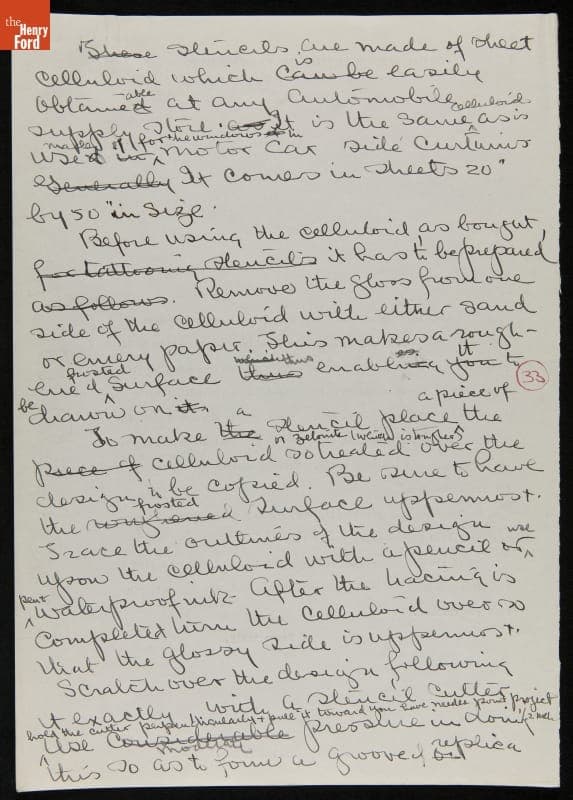 the
Henry
Ford
These stencils are made of sheet
celluloid which can be is easily
obtained able at any automobile
supply store. as It is the same celluloid as is
used in made up for the windows in motor car side curtains
Generally It comes in sheets 20"
by 50" in size.
Before using the celluloid as bought,
for tattooing stencils it has to be prepared
as follows. Remove the gloss from one
side of the celluloid with either sand
or emery paper. This makes a rough-
ened frosted surface thus enabling you it to
be drawn on it.
33
To make the a stencil place the a piece of
piece of celluloid or zelonite (which is tougher) so treated over the
design to be copied. Be sure to have
the roughened frosted surface uppermost.
Trace the outlines of the design
upon the celluloid with a pencil or use
pen waterproof ink. After the tracing is
completed turn the celluloid over so
that the glossy side is uppermost.
Scratch over the design following
it exactly with a stencil cutter
hold the cutter perpendicularly & pull it toward you have needle point project 1/2 inch
Use considerable moderate pressure in doing
this so as to form a grooved replica